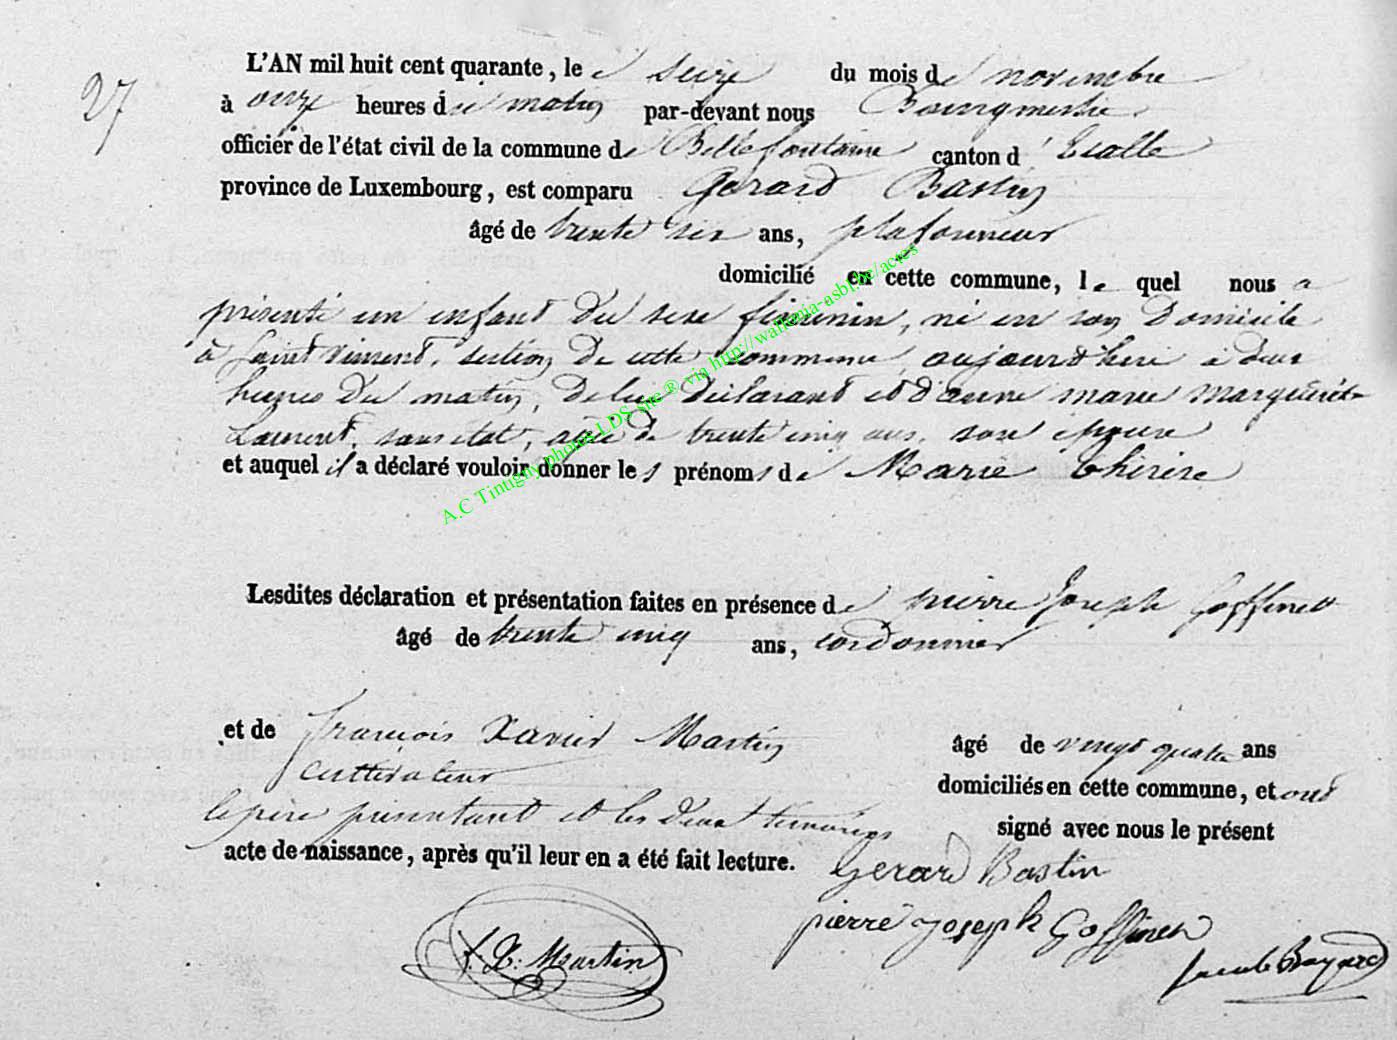 27
L'AN mil huit cent quarante, le seize du mois de novembre
à onze heures du matin par-devant nous Bourgmestre
officier de l'état civil de la commune de Bellefontaine canton d'Etalle
province de Luxembourg, est comparu Gerard Bastin
âgé de trente six ans, plafonneur
domicilié en cette commune, le quel nous a
présenté un enfant du sexe feminin, né en son Domicile
à Saint Vincent, section de cette commune, aujourd'hui à deux
heures du matin, de lui déclarant et d'anne marie marguerite
Laurent, sans état, agée de trente cinq ans, son épouse
et auquel il a déclaré vouloir donner les prénoms de Marie thérèse
A.C Tintigny photos LDS site ® via http://wallonia-asbl.be/actes
Lesdites déclaration et présentation faites en présence de pierre Joseph Goffinet
âgé de trente cinq ans, cordonnier
et de françois Xavier Martin âgé de vingt quatre ans
cultivateur domiciliés en cette commune, et ont
le père présentant et les deux témoins signé avec nous le présent
acte de naissance, après qu'il leur en a été fait lecture.
Gerard Bastin
pierre joseph Goffinet
f. X. Martin
Bayard